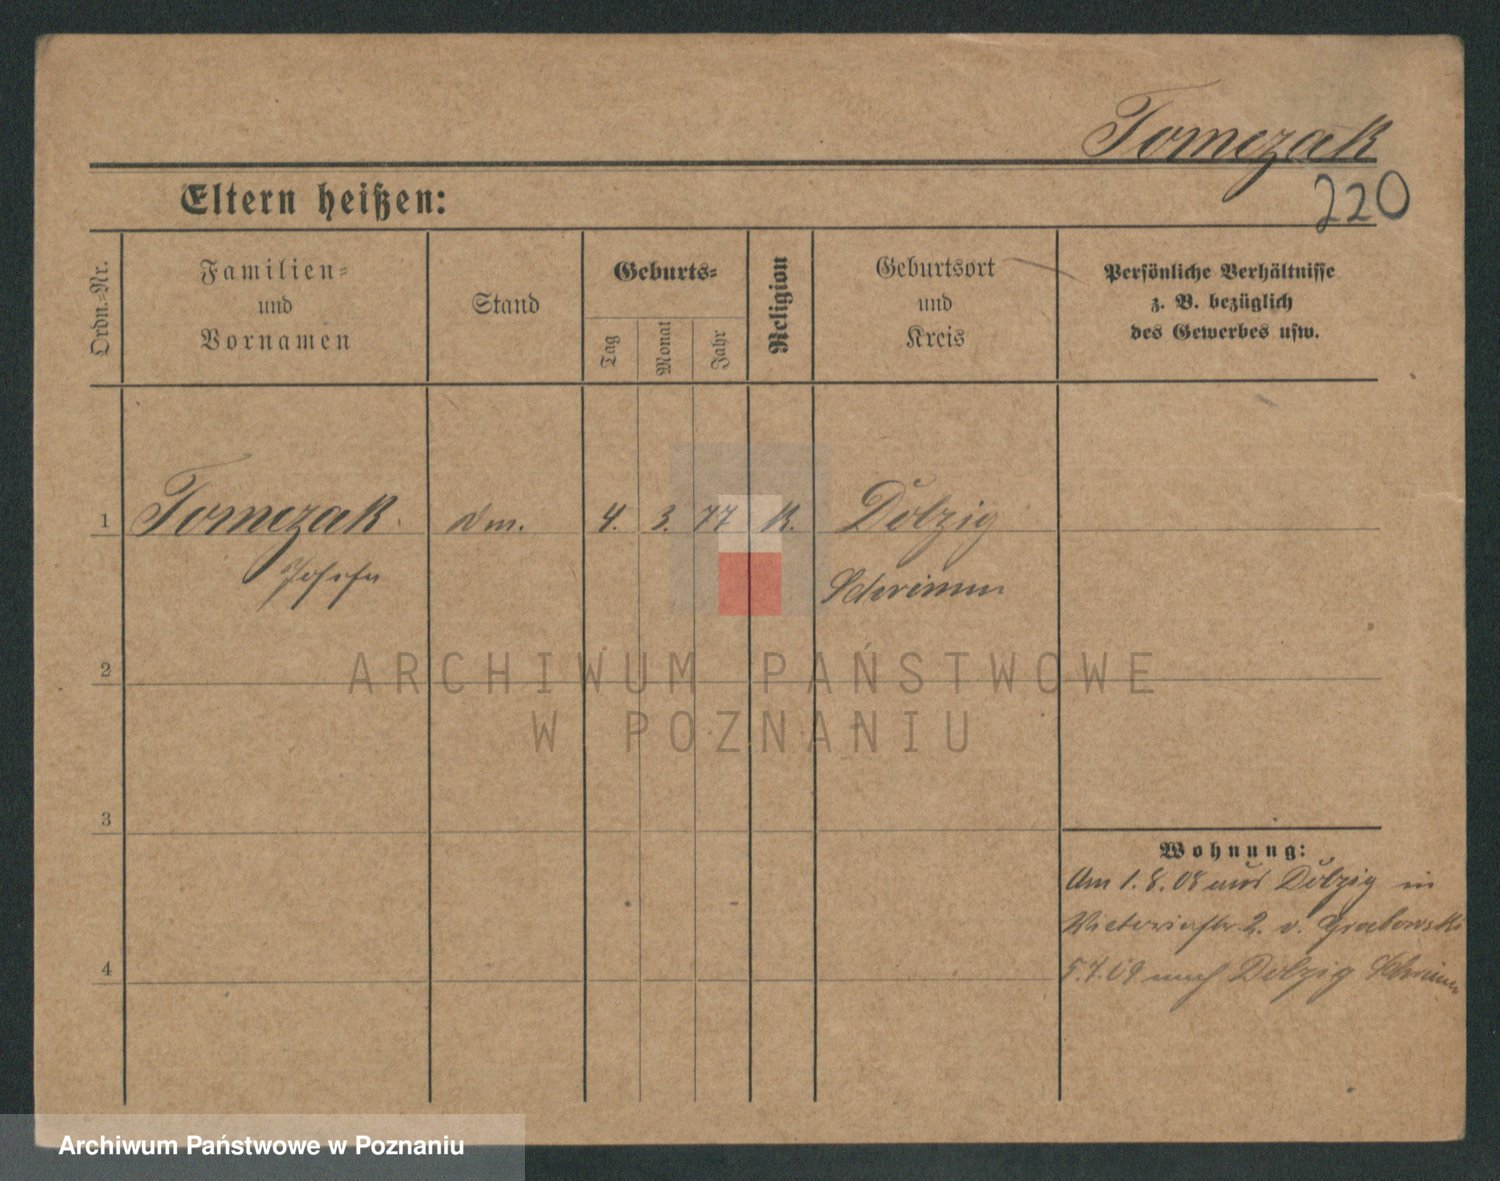 Tomczak
220
Eltern heißen:
Ordn.-Nr.
Familien-
und
Vornamen
Stand
Geburts-
Tag
Monat
Jahr
Religion
Geburtsort
und
Kreis
Persönliche Verhältnisse
z. B. bezüglich
des Gewerbes usw.
1
Tomczak
4. 3. 77 K. Dolzig
Josefa
Schrimm
2
ARCHIWUM PAŃSTWOWE
W POZNANIU
3
Wohnung:
Am 1.8.08 aus Dolzig in
Victoriastr. 2. v. Grabowski
5.7.09 nach Dolzig Schrimm
4
Archiwum Państwowe w Poznaniu